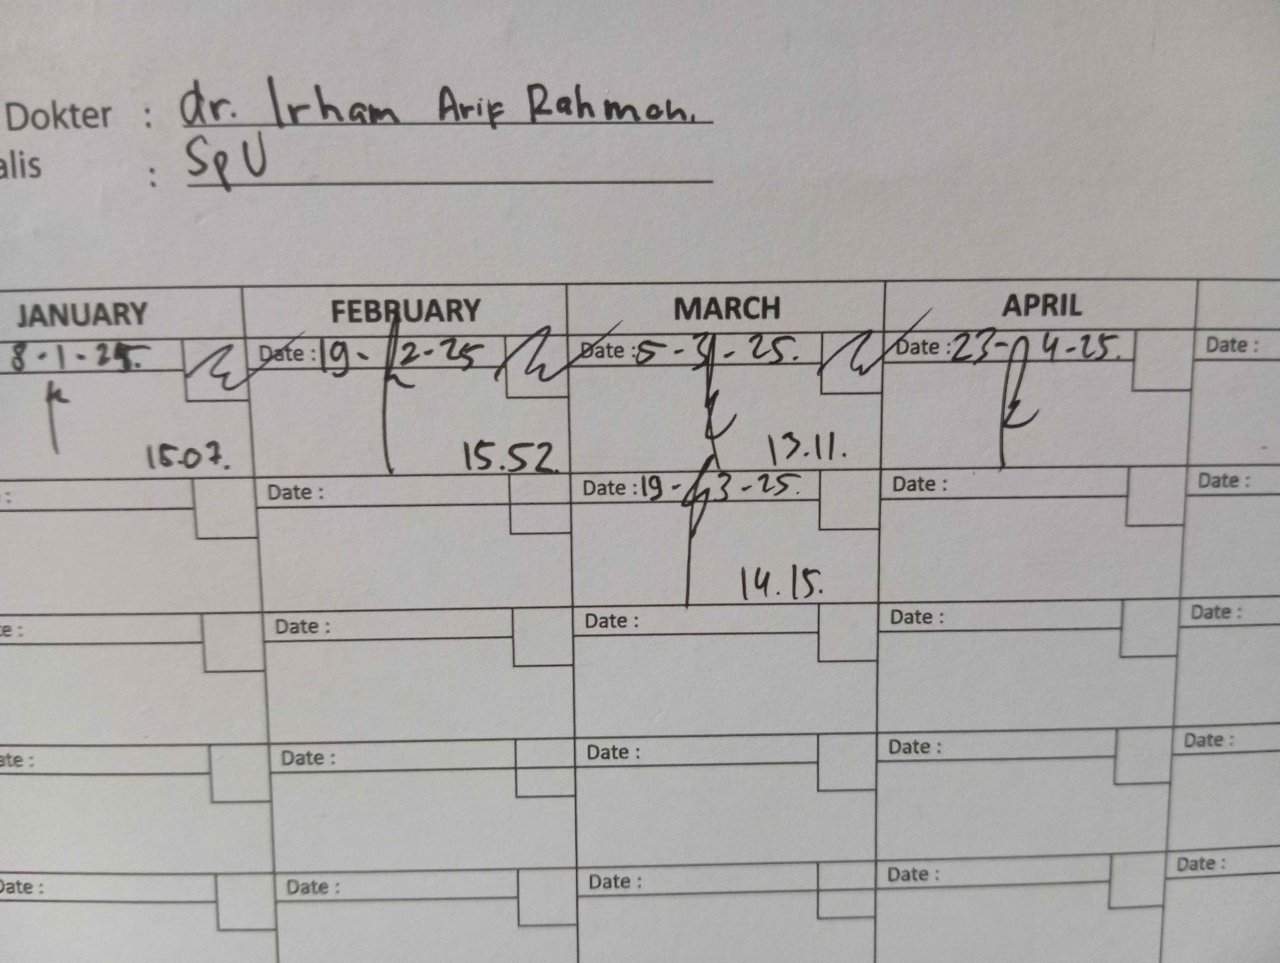 Dokter : dr. Irham Arif Rahman.
alis : SpU
JANUARY FEBRUARY MARCH APRIL
8-1-25. Date : 19-2-25 Date : 5-3-25. Date : 23-4-25. Date :
15.07. 15.52. 13.11.
: Date : Date : 19-3-25. Date : Date :
14.15.
te : Date : Date : Date : Date :
ate : Date : Date : Date : Date :
Date : Date : Date : Date : Date :